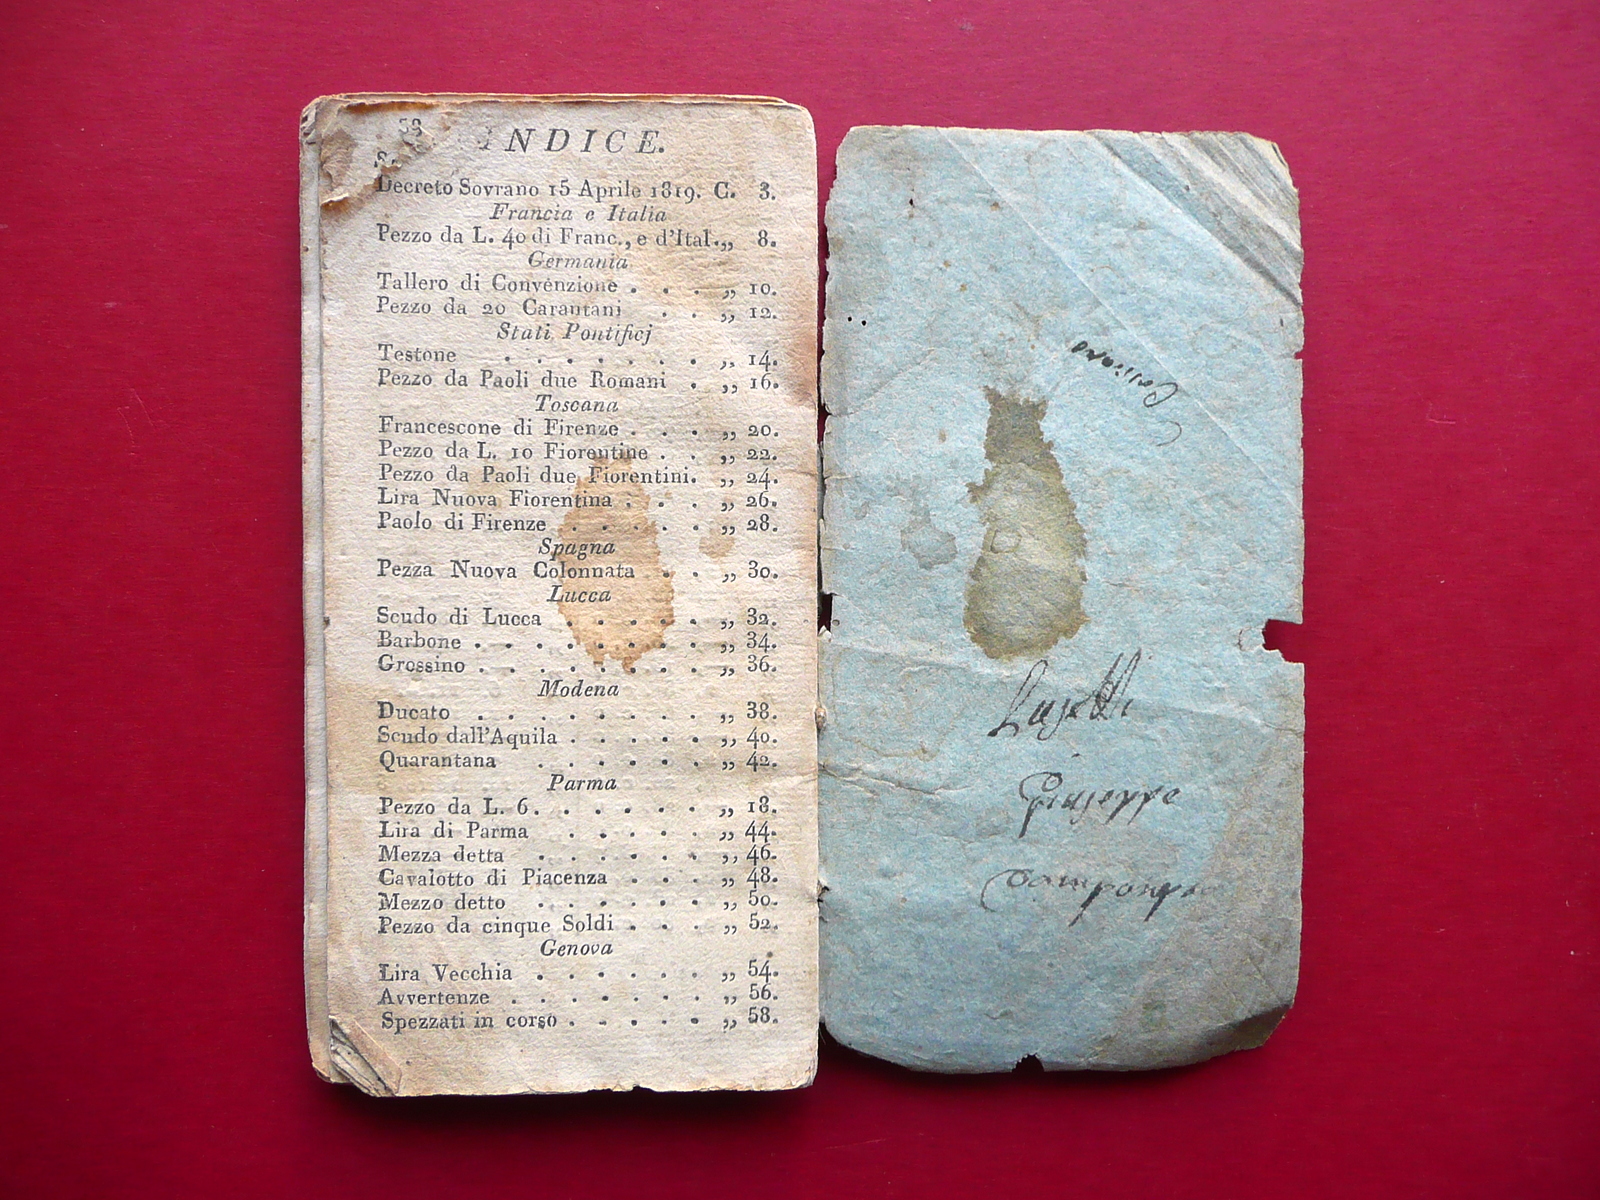 58
INDICE.
Decreto Sovrano 15 Aprile 1819. C. 3.
Francia e Italia
Pezzo da L. 40 di Franc., e d'Ital. „ 8.
Germania
Tallero di Convenzione . . . „ 10.
Pezzo da 20 Carantani . . „ 12.
Stati Pontificj
Testone . . . . . . . „ 14.
Pezzo da Paoli due Romani . „ 16.
Toscana
Francescone di Firenze . . . „ 20.
Pezzo da L. 10 Fiorentine . . „ 22.
Pezzo da Paoli due Fiorentini. „ 24.
Lira Nuova Fiorentina . . . „ 26.
Paolo di Firenze . . . . . „ 28.
Spagna
Pezza Nuova Colonnata . . „ 30.
Lucca
Scudo di Lucca . . . . . „ 32.
Barbone . . . . . . . . „ 34.
Grossino . . . . . . . . „ 36.
Modena
Ducato . . . . . . . . „ 38.
Scudo dall'Aquila . . . . . „ 40.
Quarantana . . . . . . „ 42.
Parma
Pezzo da L. 6. . . . . . „ 18.
Lira di Parma . . . . . „ 44.
Mezza detta . . . . . . „ 46.
Cavalotto di Piacenza . . . „ 48.
Mezzo detto . . . . . . „ 50.
Pezzo da cinque Soldi . . . „ 52.
Genova
Lira Vecchia . . . . . . „ 54.
Avvertenze . . . . . . . „ 56.
Spezzati in corso . . . . . „ 58.
Giuseppe